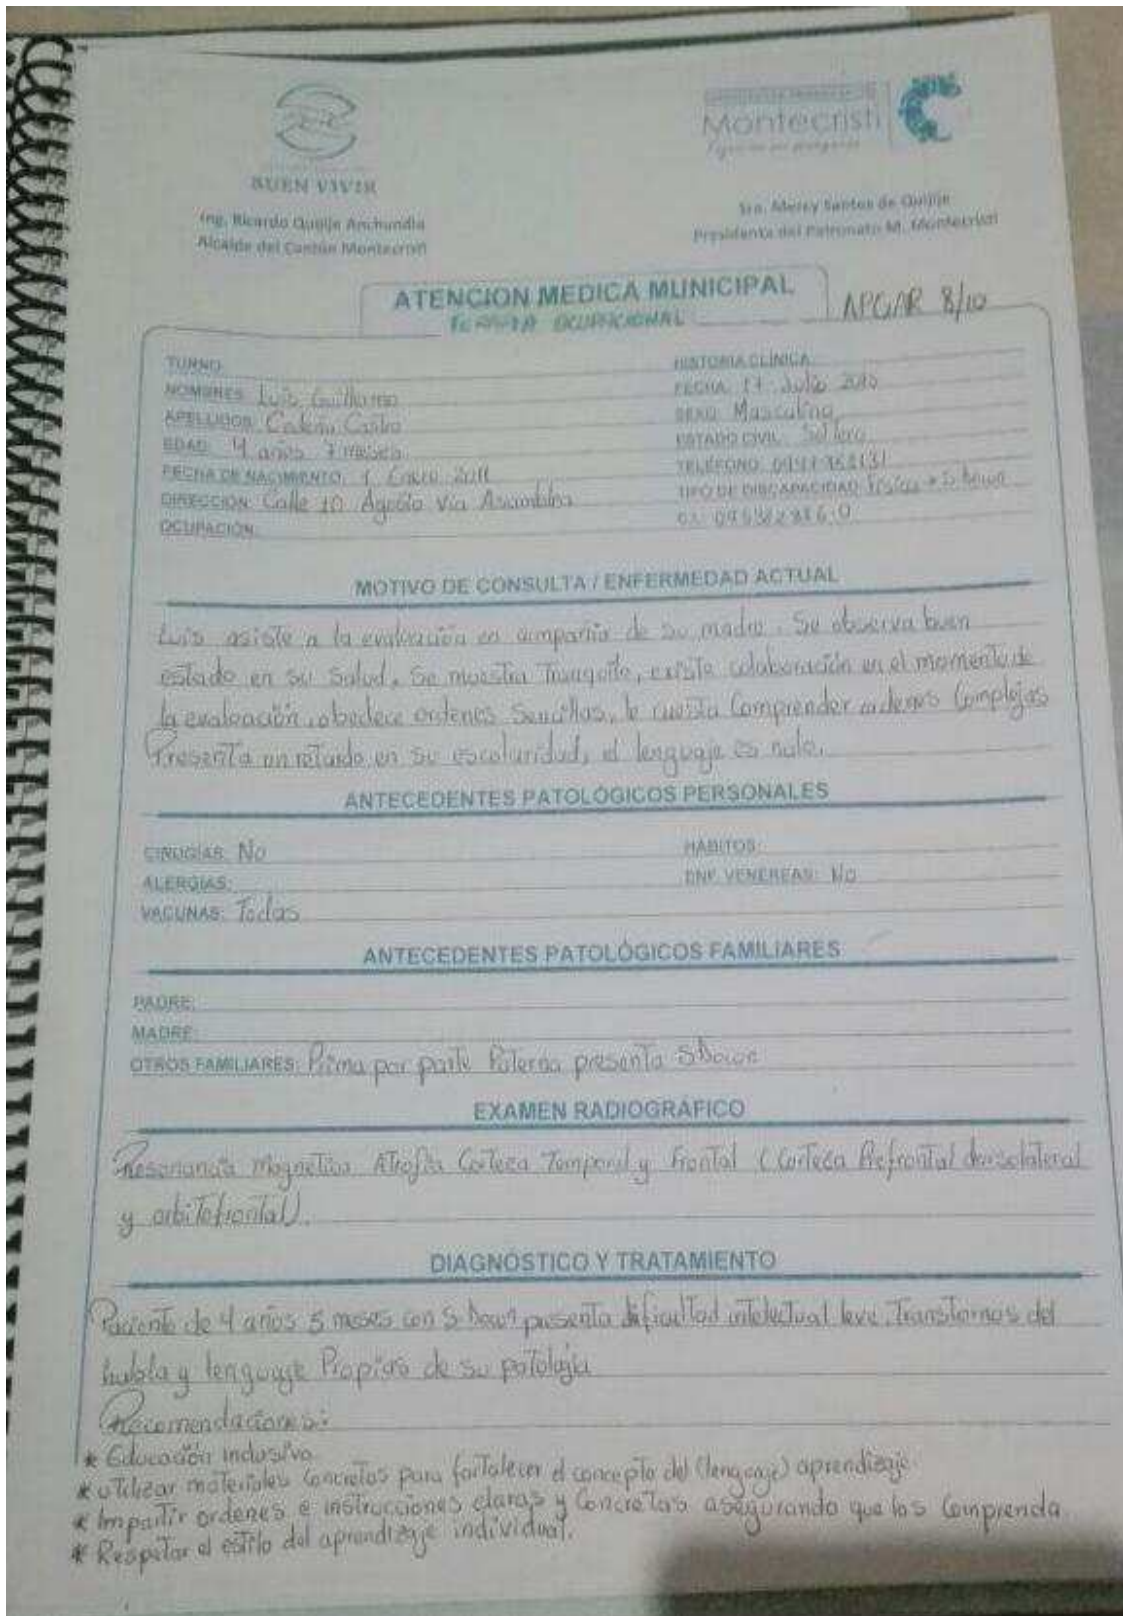 BUEN VIVIR
Montecristi
Ing. Ricardo Quijije Anchundia
Alcalde del Cantón Montecristi
Sra. Mercy Santos de Quijije
Presidenta del Patronato M. Montecristi
ATENCION MEDICA MUNICIPAL
OCUPACIONAL
APGAR 8/10
TURNO:
HISTORIA CLÍNICA:
NOMBRES: Luis Guillermo
FECHA: 17 Julio
APELLIDOS: Castro
SEXO: Masculino
EDAD: 4 años 7 meses
ESTADO CIVIL: Soltero
FECHA DE NACIMIENTO: 1 Enero 2011
TELÉFONO:
DIRECCIÓN: Calle 10 Agosto Via
TIPO DE DISCAPACIDAD: Física + S. Down
OCUPACIÓN:
MOTIVO DE CONSULTA / ENFERMEDAD ACTUAL
Luis asiste a la evaluación en compañia de su madre. Se observa buen
estado en su Salud. Se muestra Tranquilo, existe colaboración en el momento de
la evaluación, obedece ordenes Sencillas, le cuesta Comprender ordenes Complejas
Presenta un retardo en su escolaridad, el lenguaje es nulo.
ANTECEDENTES PATOLÓGICOS PERSONALES
CIRUGÍAS: No
HABITOS:
ALERGIAS:
ENF. VENEREAS: No
VACUNAS: Todas
ANTECEDENTES PATOLÓGICOS FAMILIARES
PADRE:
MADRE:
OTROS FAMILIARES: Prima por parte Paterna presenta S Down
EXAMEN RADIOGRÁFICO
Resonancia Magnetica Atrofia Corteza Temporal y Frontal (Corteza Prefrontal dorsolateral
y orbitofrontal).
DIAGNÓSTICO Y TRATAMIENTO
Paciente de 4 años 5 meses con S Down presenta dificultad intelectual leve. Transtornos del
habla y lenguaje Propias de su patología
Recomendaciones:
* Educación inclusiva
* Utilizar materiales Concretos para fortalecer el concepto del (lenguaje) aprendizaje
* Impartir ordenes e instrucciones claras y Concretas asegurando que los Comprenda.
* Respetar el estilo del aprendizaje individual.